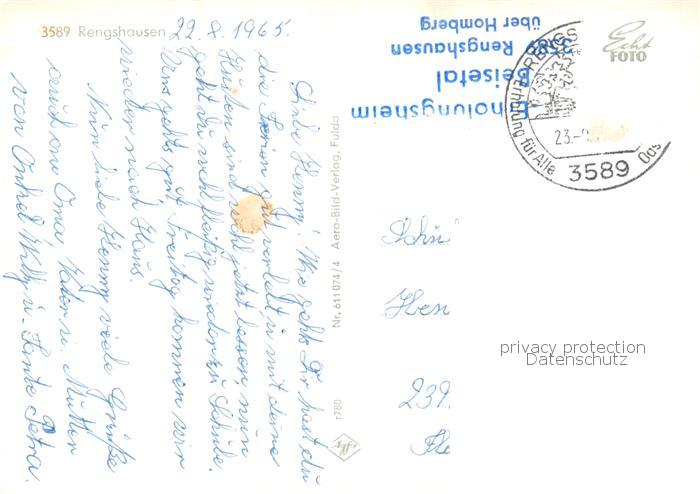 3589 Rengshausen
22.8.1965.
Liebe Henny! Wie gehts Dir hast du
die Ferien gut verlebt u. mit deine
Husten sind wohl jetzt besser, nun
gehst du wohl fleißig wieder zu Schule.
Uns gehts gut Freitag kommen wir
wieder nach Haus.
Nun liebe Henny viele Grüße
auch an Oma Vater u. Mutter
von Onkel Willy u. Tante Petra.
Nr. 611 074/4 Aero-Bild-Verlag, Fulda
r780
Agfa
Erholungsheim
Beisetal
3589 Rengshausen
über Homberg
Echt
FOTO
RENGS
Erholung für Alle
23.-
3589
Das
Schü
Hen
239.
privacy protection
Datenschutz